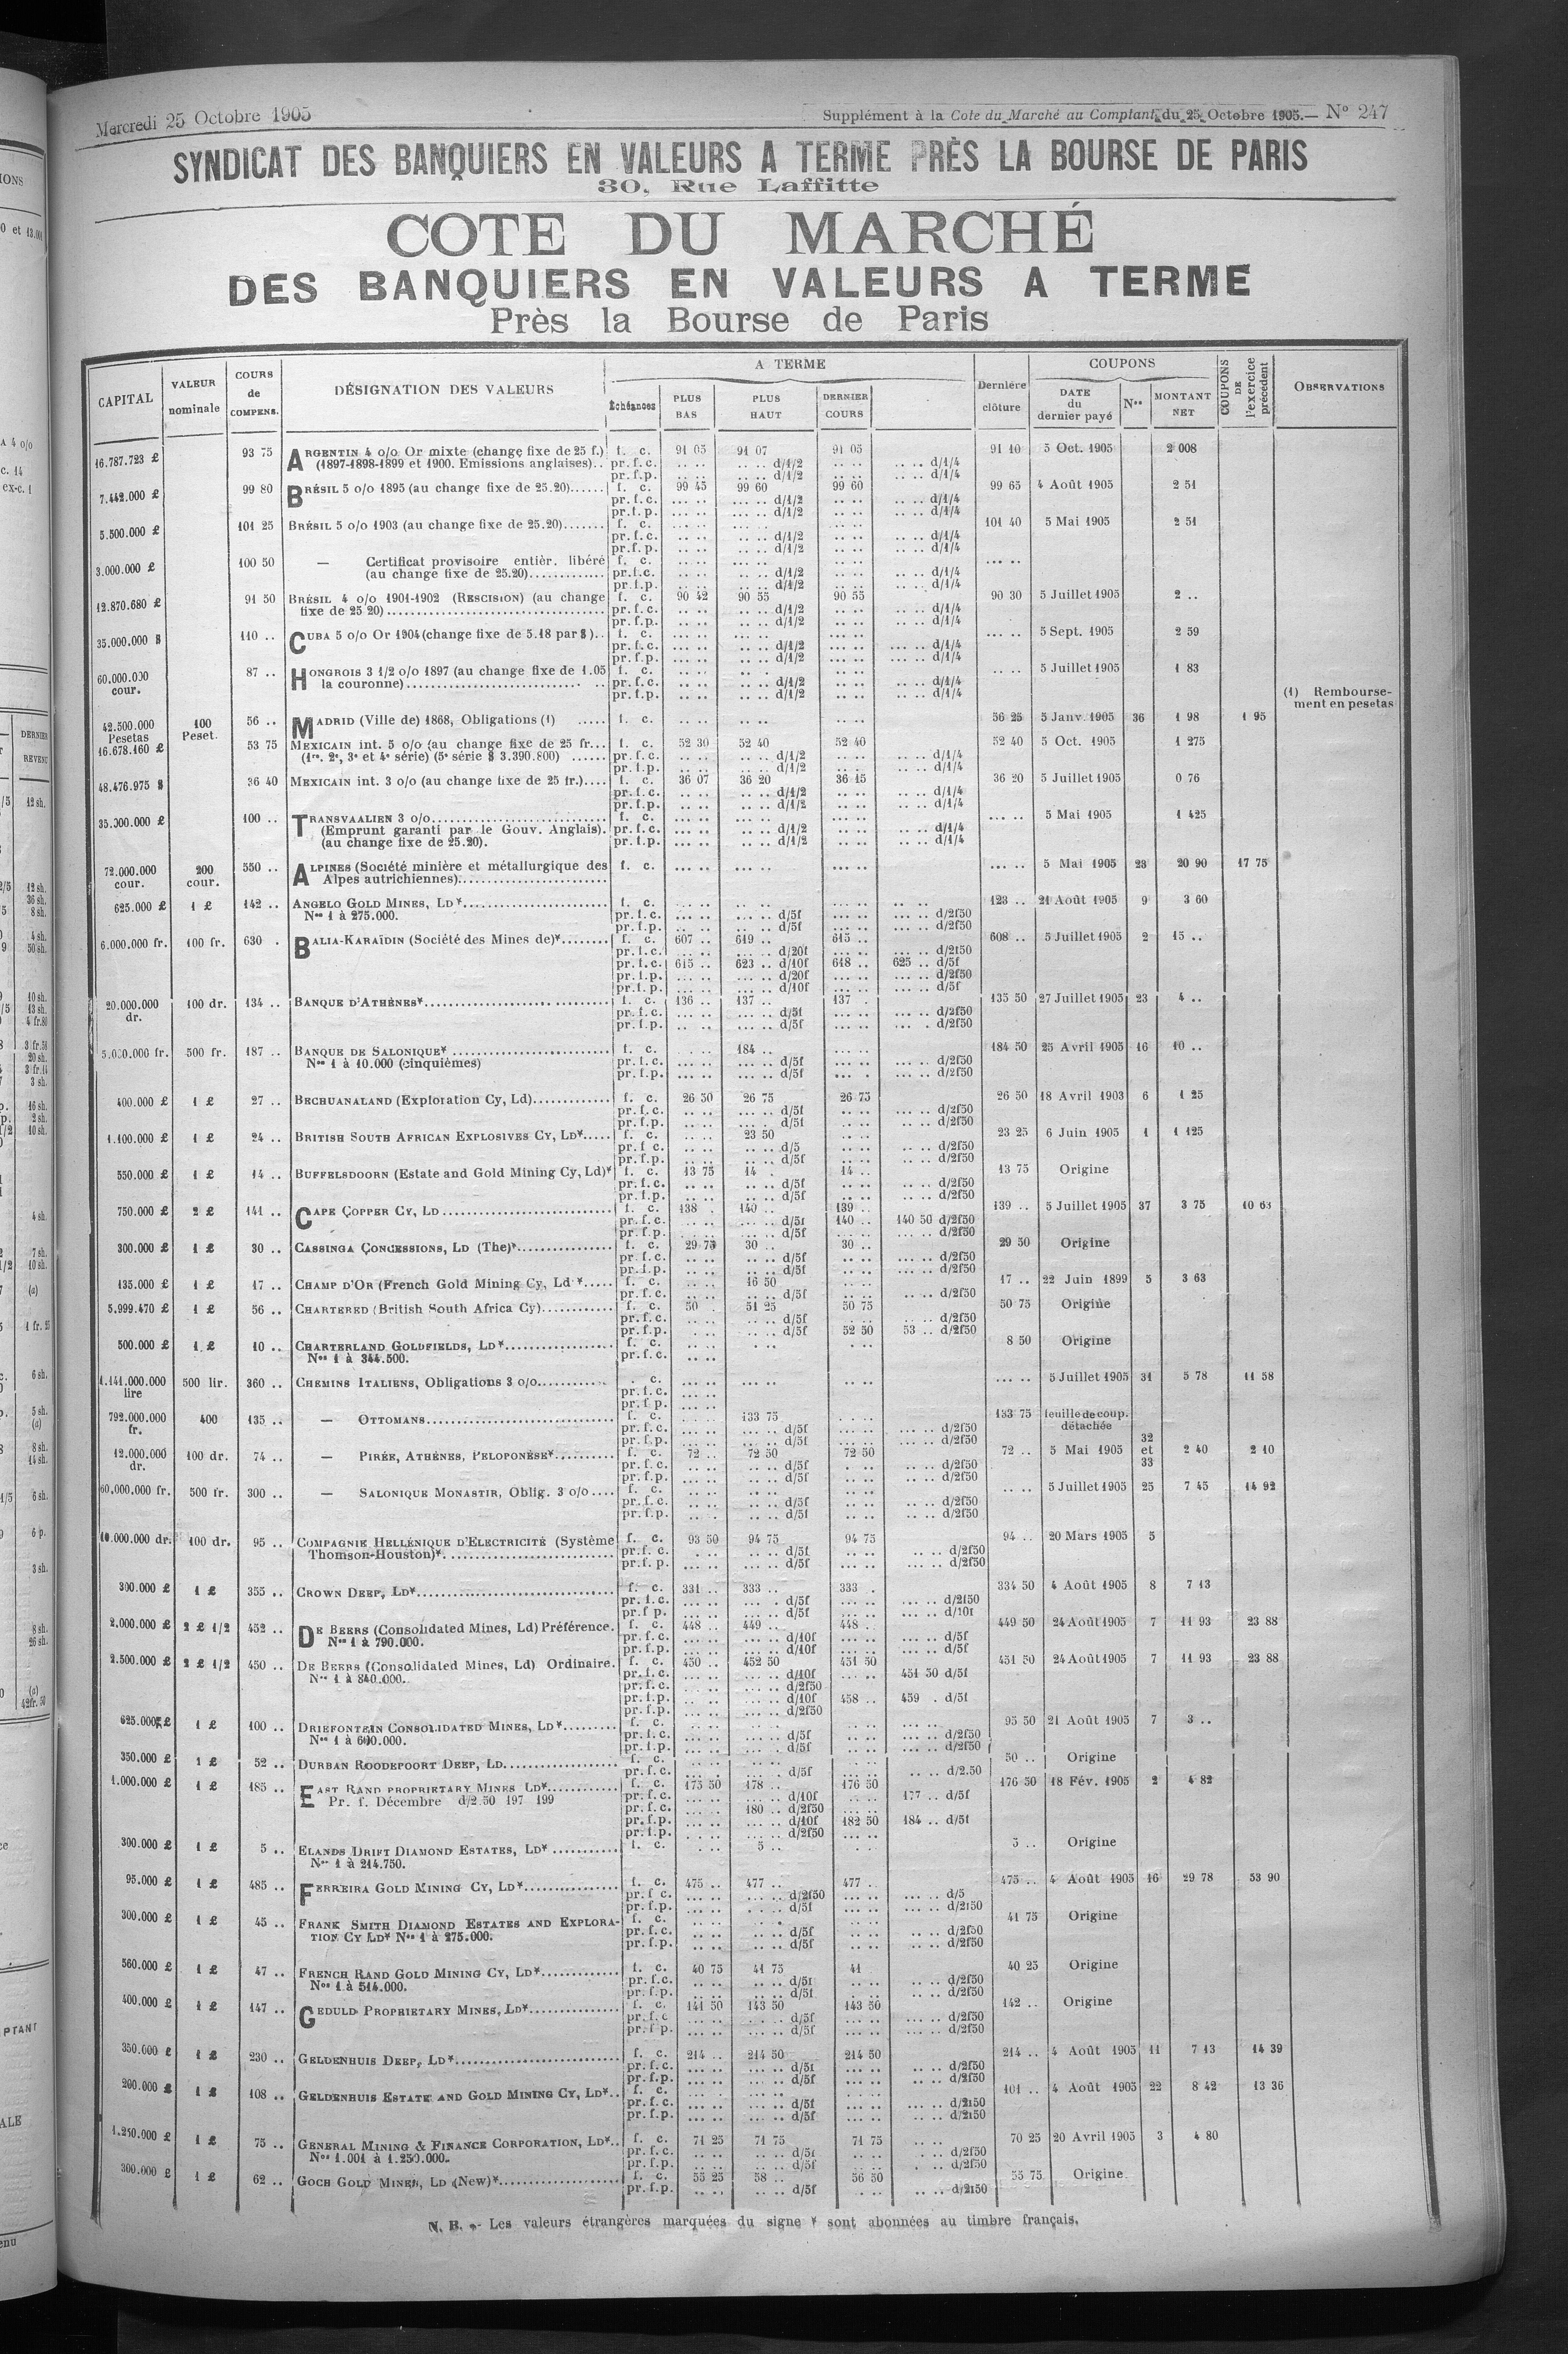 Mercredi 25 Octobre 1905
Supplément à la Cote du Marché au Comptant du 25 Octobre 1905.— N° 247
SYNDICAT DES BANQUIERS EN VALEURS A TERME PRÈS LA BOURSE DE PARIS
30, Rue Laffitte
COTE DU MARCHÉ
DES BANQUIERS EN VALEURS A TERME
Près la Bourse de Paris
CAPITAL | VALEUR nominale | COURS de COMPENS. | DÉSIGNATION DES VALEURS | A TERME | Échéances | PLUS BAS | PLUS HAUT | DERNIER COURS | Dernière clôture | COUPONS | DATE du dernier payé | Nos | MONTANT NET | COUPONS DE l'exercice précédent | OBSERVATIONS
16.787.723 £ 93 75 ARGENTIN 4 o/o Or mixte (change fixe de 25 f.) f. c. 91 05 91 07 91 05 91 10 5 Oct. 1905 2 008
(1897-1898-1899 et 1900. Emissions anglaises).. pr. f. c. .. .. .. .. d/1/2 .. .. .. .. d/1/4
pr. f. p. .. .. .. .. d/1/2 .. .. .. .. d/1/4
7.442.000 £ 99 80 BRÉSIL 5 o/o 1895 (au change fixe de 25.20)...... f. c. 99 45 99 60 99 60 99 65 4 Août 1905 2 51
pr. f. c. ... .. ... .. d/1/2 .. .. .. .. d/1/4
pr. f. p. ... .. ... .. d/1/2 .. .. .. .. d/1/4
5.500.000 £ 101 25 BRÉSIL 5 o/o 1903 (au change fixe de 25.20)....... f. c. ... .. ... .. .. .. 101 40 5 Mai 1905 2 51
pr. f. c. ... .. .. .. d/1/2 .. .. .. .. d/1/4
pr. f. p. ... .. .. .. d/1/2 .. .. .. .. d/1/4
3.000.000 £ 100 50 — Certificat provisoire entièr. libéré f. c. .. .. ... .. .. .. ... ..
(au change fixe de 25.20)............. pr. f. c. .. .. .. .. d/1/2 .. .. .. .. d/1/4
pr. f. p. .. .. .. .. d/1/2 .. .. .. .. d/1/4
12.870.680 £ 91 50 BRÉSIL 4 o/o 1901-1902 (RESCISION) (au change f. c. 90 42 90 55 90 55 90 30 5 Juillet 1905 2 ..
fixe de 25 20)........ pr. f. c. .. .. .. .. d/1/2 .. .. .. .. d/1/4
pr. f. p. .. .. .. .. d/1/2 .. .. .. .. d/1/4
35.000.000 $ 110 .. CUBA 5 o/o Or 1904 (change fixe de 5.18 par $).. f. c. ... .. ... .. ... .. ... .. 5 Sept. 1905 2 59
pr. f. c. ... .. .. .. d/1/2 ... .. ... .. d/1/4
pr. f. p. ... .. .. .. d/1/2 ... .. ... .. d/1/4
60.000.000 cour. 87 .. HONGROIS 3 1/2 o/o 1897 (au change fixe de 1.05 f. c. .. .. .. .. .. .. .. .. 5 Juillet 1905 1 83
la couronne)........ pr. f. c. .. .. .. .. d/1/2 .. .. .. .. d/1/4
pr. f. p. .. .. .. .. d/1/2 .. .. .. .. d/1/4
(1) Remboursement en pesetas
42.500.000 Pesetas 100 Peset. 56 .. MADRID (Ville de) 1868, Obligations (1) ..... f. c. .. .. .. .. .. .. 56 25 5 Janv. 1905 36 1 98 1 95
16.678.160 £ 53 75 MEXICAIN int. 5 o/o (au change fixe de 25 fr... f. c. 52 30 52 40 52 40 52 40 5 Oct. 1905 1 275
(1re, 2e, 3e et 4e série) (5e série $ 3.390.800) ...... pr. f. c. .. .. .. .. d/1/2 .. .. .. .. d/1/4
pr. f. p. .. .. .. .. d/1/2 .. .. .. .. d/1/4
48.476.975 $ 36 40 MEXICAIN int. 3 o/o (au change fixe de 25 fr.).... f. c. 36 07 36 20 36 15 36 20 5 Juillet 1905 0 76
pr. f. c. .. .. .. .. d/1/2 .. .. .. .. d/1/4
pr. f. p. .. .. .. .. d/1/2 .. .. .. .. d/1/4
35.000.000 £ 100 .. TRANSVAALIEN 3 o/o........ f. c. ... .. ... .. ... .. ... .. 5 Mai 1905 1 425
(Emprunt garanti par le Gouv. Anglais). pr. f. c. ... .. ... .. d/1/2 ... .. .. .. d/1/4
(au change fixe de 25.20). pr. f. p. ... .. ... .. d/1/2 ... .. .. .. d/1/4
72.000.000 cour. 200 cour. 550 .. ALPINES (Société minière et métallurgique des f. c. ... .. ... .. ... .. ... .. 5 Mai 1905 23 20 90 17 75
Alpes autrichiennes)........
625.000 £ 1 £ 142 .. ANGELO GOLD MINES, LD*........ f. c. ... .. ... .. ... .. 123 .. 21 Août 1905 9 3 60
Nos 1 à 275.000. pr. f. c. ... .. ... .. d/5f ... .. ... .. d/2f50
pr. f. p. ... .. ... .. d/5f ... .. ... .. d/2f50
6.000.000 fr. 100 fr. 630 . BALIA-KARAÏDIN (Société des Mines de)*........ f. c. 607 .. 619 .. 615 .. 608 .. 5 Juillet 1905 2 15 ..
pr. f. c. ... .. ... .. d/20f ... .. ... .. d/2f50
pr. f. c. 615 .. 623 .. d/10f 618 .. 625 .. d/5f
pr. f. p. ... .. ... .. d/20f ... .. ... .. d/2f50
pr. f. p. ... .. ... .. d/10f ... .. ... .. d/5f
20.000.000 dr. 100 dr. 134 .. BANQUE D'ATHÈNES*........ f. c. 136 .. 137 .. 137 . 135 50 27 Juillet 1905 23 4 ..
pr. f. c. ... .. ... .. d/5f ... .. ... .. d/2f50
pr. f. p. .. .. ... .. d/5f ... .. ... . d/2f50
5.000.000 fr. 500 fr. 187 .. BANQUE DE SALONIQUE* ........ f. c. . .. 184 .. ... .. 184 50 25 Avril 1905 16 10 ..
Nos 1 à 10.000 (cinquièmes) pr. f. c. ... .. ... .. d/5f ... .. ... .. d/2f50
pr. f. p. ... .. ... .. d/5f ... . ... .. d/2f50
400.000 £ 1 £ 27 .. BECHUANALAND (Exploration Cy, Ld)............. f. c. 26 50 26 75 26 75 26 50 18 Avril 1903 6 1 25
pr. f. c. .. .. ... .. d/5f .. .. ... .. d/2f50
pr. f. p. .. .. ... . d/5f .. .. ... .. d/2f50
1.100.000 £ 1 £ 24 .. BRITISH SOUTH AFRICAN EXPLOSIVES CY, LD*..... f. c. .. .. 23 50 .. .. 23 25 6 Juin 1905 1 1 125
pr. f. c. .. .. .. .. d/5 .. .. .. .. d/2f50
pr. f. p. .. .. .. .. d/5f .. .. .. .. d/2f50
550.000 £ 1 £ 14 .. BUFFELSDOORN (Estate and Gold Mining Cy, Ld)* f. c. 13 75 14 . 14 .. 13 75 Origine
pr. f. c. .. .. .. .. d/5f .. .. .. .. d/2f50
pr. f. p. .. .. .. .. d/5f .. .. .. .. d/2f50
750.000 £ 2 £ 141 .. CAPE COPPER CY, LD ........ f. c. 138 . 140 .. 139 .. 139 .. 5 Juillet 1905 37 3 75 10 63
pr. f. c. .. .. ... .. d/5f 140 .. 140 50 d/2f50
pr. f. p. ... .. ... .. d/5f ... .. ... .. d/2f50
300.000 £ 1 £ 30 .. CASSINGA CONCESSIONS, LD (The)*................ f. c. 29 75 30 .. 30 .. 29 50 Origine
pr. f. c. .. .. .. .. d/5f .. .. .. .. d/2f50
pr. f. p. .. .. .. .. d/5f .. .. .. .. d/2f50
135.000 £ 1 £ 17 .. CHAMP D'OR (French Gold Mining Cy, Ld *..... f. c. .. .. 16 50 .. .. 17 .. 22 Juin 1899 5 3 63
pr. f. c. .. .. .. .. d/5f .. .. .. .. d/2f50
5.999.470 £ 1 £ 56 .. CHARTERED (British South Africa Cy)............ f. c. 50 . 51 25 50 75 50 75 Origine
pr. f. c. .. .. .. .. d/5f .. .. .. .. d/2f50
pr. f. p. .. .. .. .. d/5f 52 50 53 .. d/2f50
500.000 £ 1 £ 10 .. CHARTERLAND GOLDFIELDS, LD*................. f. c. .. .. .. .. .. .. 8 50 Origine
Nos 1 à 344.500. pr. f. c. .. ..
1.141.000.000 lire 500 lir. 360 .. CHEMINS ITALIENS, Obligations 3 o/o........... . c. ... .. ... .. .. .. ... .. 5 Juillet 1905 31 5 78 11 58
pr. f. c. ... ..
pr. f. p. ... ..
792.000.000 fr. 400 135 .. — OTTOMANS........ f. c. ... .. 133 75 . .. 133 75 feuille de coup. détachée
pr. f. c. ... .. ... .. d/5f ... .. ... .. d/2f50
pr. f. p. ... .. ... .. d/5f ... .. ... .. d/2f50
12.000.000 dr. 100 dr. 74 .. — PIRÉE, ATHÈNES, PÉLOPONÈSE*........... f. c. 72 .. 72 50 72 50 72 .. 5 Mai 1905 32 et 33 2 40 2 10
pr. f. c. .. .. .. .. d/5f . .. .. .. d/2f50
pr. f. p. .. .. .. .. d/5f .. .. .. .. d/2f50
60,000,000 fr. 500 fr. 300 .. — SALONIQUE MONASTIR, Oblig. 3 o/o.... f. c. .. .. .. .. .. .. .. .. 5 Juillet 1905 25 7 45 14 92
pr. f. c. .. .. .. .. d/5f .. .. .. .. d/2f50
pr. f. p. .. .. .. .. d/5f .. .. .. .. d/2f50
10.000.000 dr. 100 dr. 95 .. COMPAGNIE HELLÉNIQUE D'ELECTRICITÉ (Système f. c. 93 50 94 75 94 75 94 .. 20 Mars 1905 5
Thomson-Houston)*........ pr. f. c. . .. ... .. d/5f .. .. .. .. d/2f50
pr. f. p. ... .. ... .. d/5f ... .. ... .. d/2f50
300.000 £ 1 £ 355 .. CROWN DEEP, LD*........ f. c. 331 .. 333 .. 333 . 334 50 4 Août 1905 8 7 13
pr. f. c. ... .. ... . d/5f ... .. ... .. d/2f50
pr. f. p. ... .. ... .. d/5f ... .. ... .. d/10f
2.000.000 £ 2 £ 1/2 452 .. DE BEERS (Consolidated Mines, Ld) Préférence. f. c. 448 .. 449 .. 448 .. 449 50 24 Août 1905 7 11 93 23 88
Nos 1 à 790.000. pr. f. c. ... .. ... .. d/10f ... .. ... .. d/5f
pr. f. p. ... .. ... .. d/10f ... .. ... .. d/5f
2.500.000 £ 2 £ 1/2 450 .. DE BEERS (Consolidated Mines, Ld) Ordinaire. f. c. 450 .. 452 50 451 50 451 50 24 Août 1905 7 11 93 23 88
Nos 1 à 840.000.. pr. f. c. ... .. ... .. d/10f ... .. 451 50 d/5f
pr. f. c. .. .. ... .. d/2f50
pr. f. p. ... .. ... .. d/10f 458 .. 459 . d/5f
pr. f. p. .. .. ... .. d/2f50
625.000 £ 1 £ 100 .. DRIEFONTEIN CONSOLIDATED MINES, LD*......... f. c. .. .. .. .. .. .. ... .. 95 50 21 Août 1905 7 3 ..
Nos 1 à 600.000. pr. f. c. ... .. .. .. d/5f ... .. ... .. d/2f50
pr. f. p. ... .. .. . d/5f ... .. ... .. d/2f50
350.000 £ 1 £ 52 .. DURBAN ROODEPOORT DEEP, LD................... f. c. .. .. .. .. .. .. 50 .. Origine
pr. f. c. .. . .. .. d/5f .. .. .. .. d/2.50
1.000.000 £ 1 £ 185 .. EAST RAND PROPRIETARY MINES LD*............ f. c. 175 50 178 .. 176 50 176 50 18 Fév. 1905 2 4 82
Pr. f. Décembre d/2.50 197 199 pr. f. c. ... .. ... .. d/10f .. .. 177 .. d/5f
pr. f. c. .. .. 180 .. d/2f50 ... ..
pr. f. p. ... .. ... .. d/10f 182 50 184 .. d/5f
pr. f. p. . .. ... .. d/2f50 ... ..
300.000 £ 1 £ 5 .. ELANDS DRIFT DIAMOND ESTATES, LD* ........... f. c. . .. 5 .. . .. 5 .. Origine
Nos 1 à 214.750.
95.000 £ 1 £ 485 .. FERREIRA GOLD MINING CY, LD*............... f. c. 475 .. 477 .. 477 .. 475 .. 4 Août 1905 16 29 78 53 90
pr. f. c. ... .. ... .. d/2f50 ... .. ... .. d/5
pr. f. p. ... .. . .. d/5f ... .. ... .. d/2f50
300.000 £ 1 £ 45 .. FRANK SMITH DIAMOND ESTATES AND EXPLORA- f. c. .. .. .. . .. .. 41 75 Origine
TION CY LD* Nos 1 à 275.000. pr. f. c. .. .. .. .. d/5f .. .. .. .. d/2f50
pr. f. p. .. .. .. .. d/5f .. .. .. .. d/2f50
560.000 £ 1 £ 47 .. FRENCH RAND GOLD MINING CY, LD*............. f. c. 40 75 41 75 41 . 40 25 Origine
Nos 1 à 514.000. pr. f. c. .. .. .. .. d/5f .. .. .. .. d/2f50
pr. f. p. .. .. .. .. d/5f .. .. .. .. d/2f50
400.000 £ 1 £ 147 .. GEDULD PROPRIETARY MINES, LD*............... f. c. 141 50 143 50 143 50 142 .. Origine
pr. f. c. ... .. . . .. d/5f ... .. .. .. d/2f50
pr. f. p. ... .. ... .. d/5f ... .. .. .. d/2f50
350.000 £ 1 £ 230 .. GELDENHUIS DEEP, LD*........ f. c. 214 .. 214 50 214 50 214 .. 4 Août 1905 11 7 13 14 39
pr. f. c. ... .. ... .. d/5f ... .. .. .. d/2f50
pr. f. p. ... .. ... .. d/5f ... .. .. .. d/2f50
200.000 £ 1 £ 108 .. GELDENHUIS ESTATE AND GOLD MINING CY, LD*.. f. c. ... . ... .. . .. 101 .. 4 Août 1905 22 8 42 13 36
pr. f. c. ... .. ... .. d/5f ... .. .. .. d/2f50
pr. f. p. ... .. ... .. d/5f ... .. .. .. d/2f50
1.250.000 £ 1 £ 75 .. GENERAL MINING & FINANCE CORPORATION, LD*.. f. c. 71 25 71 75 71 75 70 25 20 Avril 1905 3 4 80
Nos 1.001 à 1.250.000. pr. f. c. .. .. .. .. d/5f .. .. . .. d/2f50
pr. f. p. .. .. .. .. d/5f .. .. . .. d/2f50
300.000 £ 1 £ 62 .. GOCH GOLD MINES, LD (New)*........ f. c. 55 25 58 .. 56 50 55 75 Origine
pr. f. p. .. .. .. .. d/5f . .. .. .. d/2f50
N. B. — Les valeurs étrangères marquées du signe * sont abonnées au timbre français.